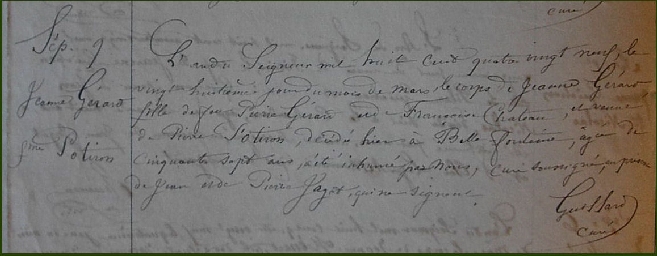 curé
Sép. 9
L'an du Seigneur mil huit cent quatre vingt neuf, le
vingt huitième jour du mois de mars le corps de Jeanne Gérard
Jeanne Gérard
fille de feu Pierre Gérard et de Françoise Chateau, et veuve
de Pierre Potiron, décédé hier à Belle fontaine, agée de
Potiron
cinquante sept ans, a été inhumé par Nous, curé soussigné, en présence
de Jean et de Pierre Jagot, qui ne signent.
Guillard
curé